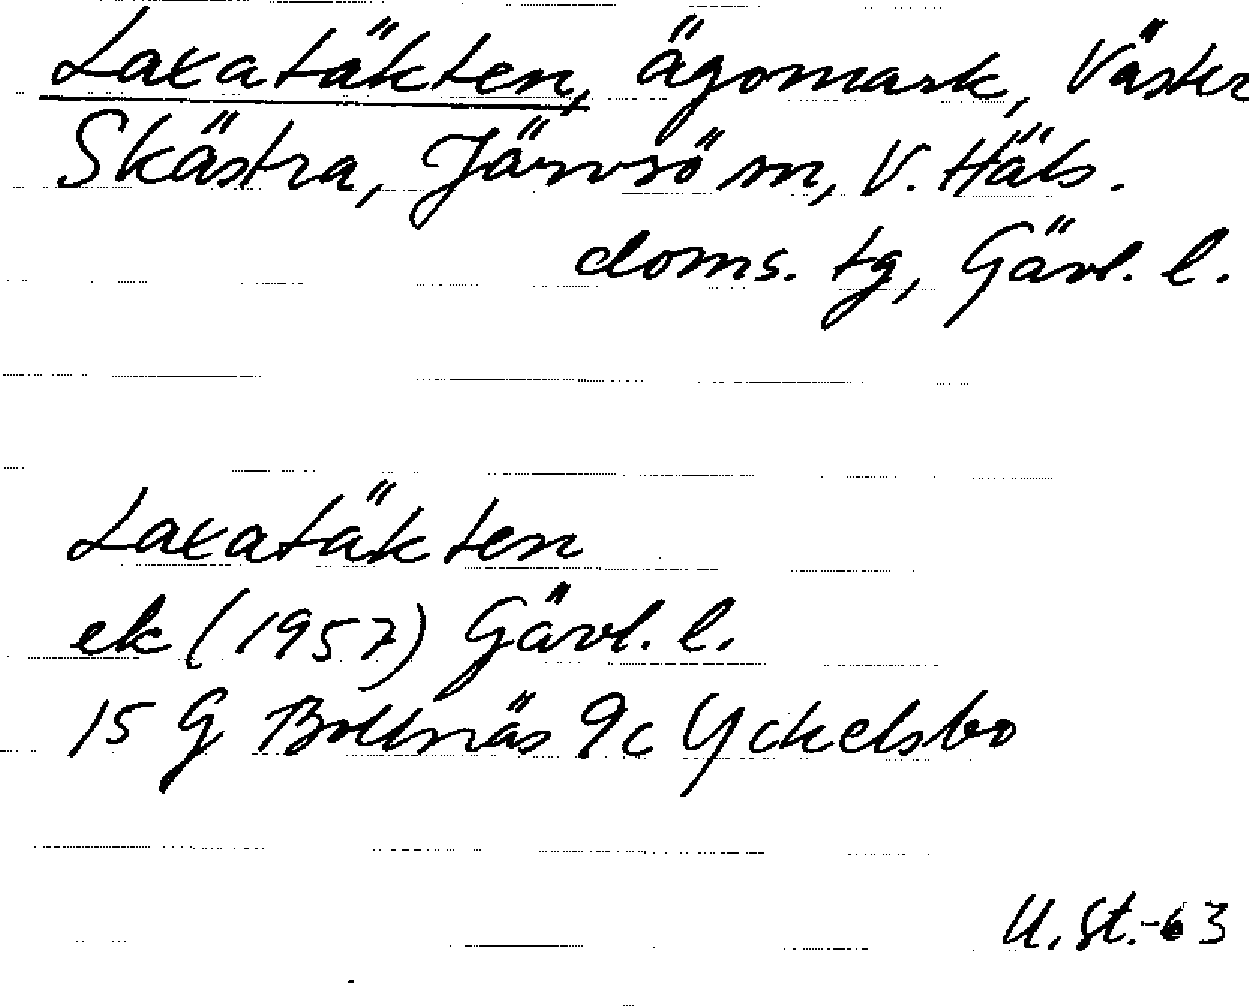 Laxatäkten, ägomark, Väster
Skästra, Järvsö sn, V. Häls.
doms. tg, Gävl. l.
Laxatäkten
ek (1957) Gävl. l.
15 G Bollnäs 9c Yckelsbo
U. St.-63